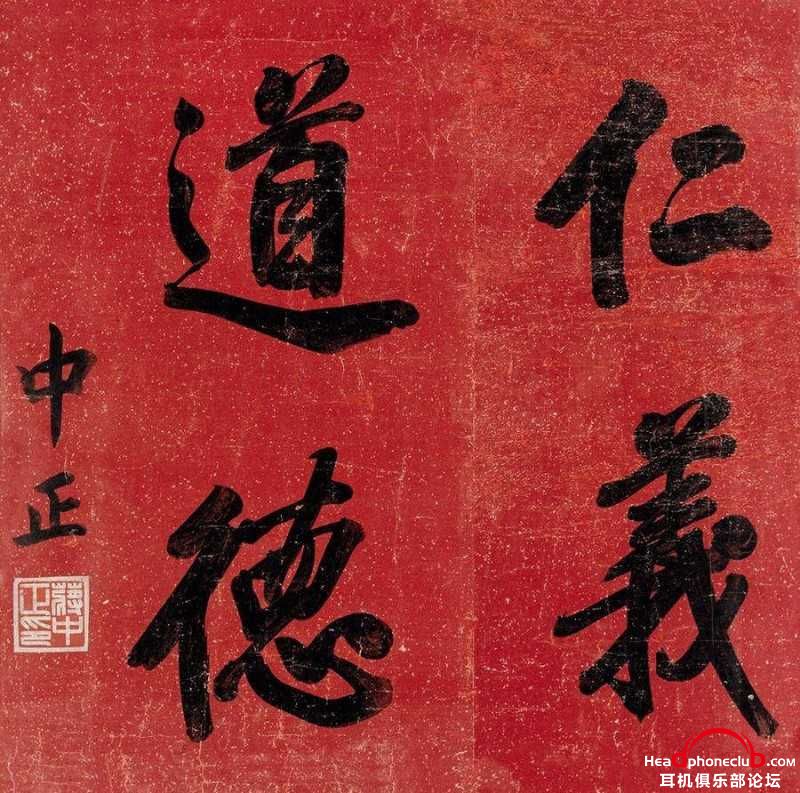 仁義
道德
中正
蔣中正印
Headphoneclub.com
耳机俱乐部论坛